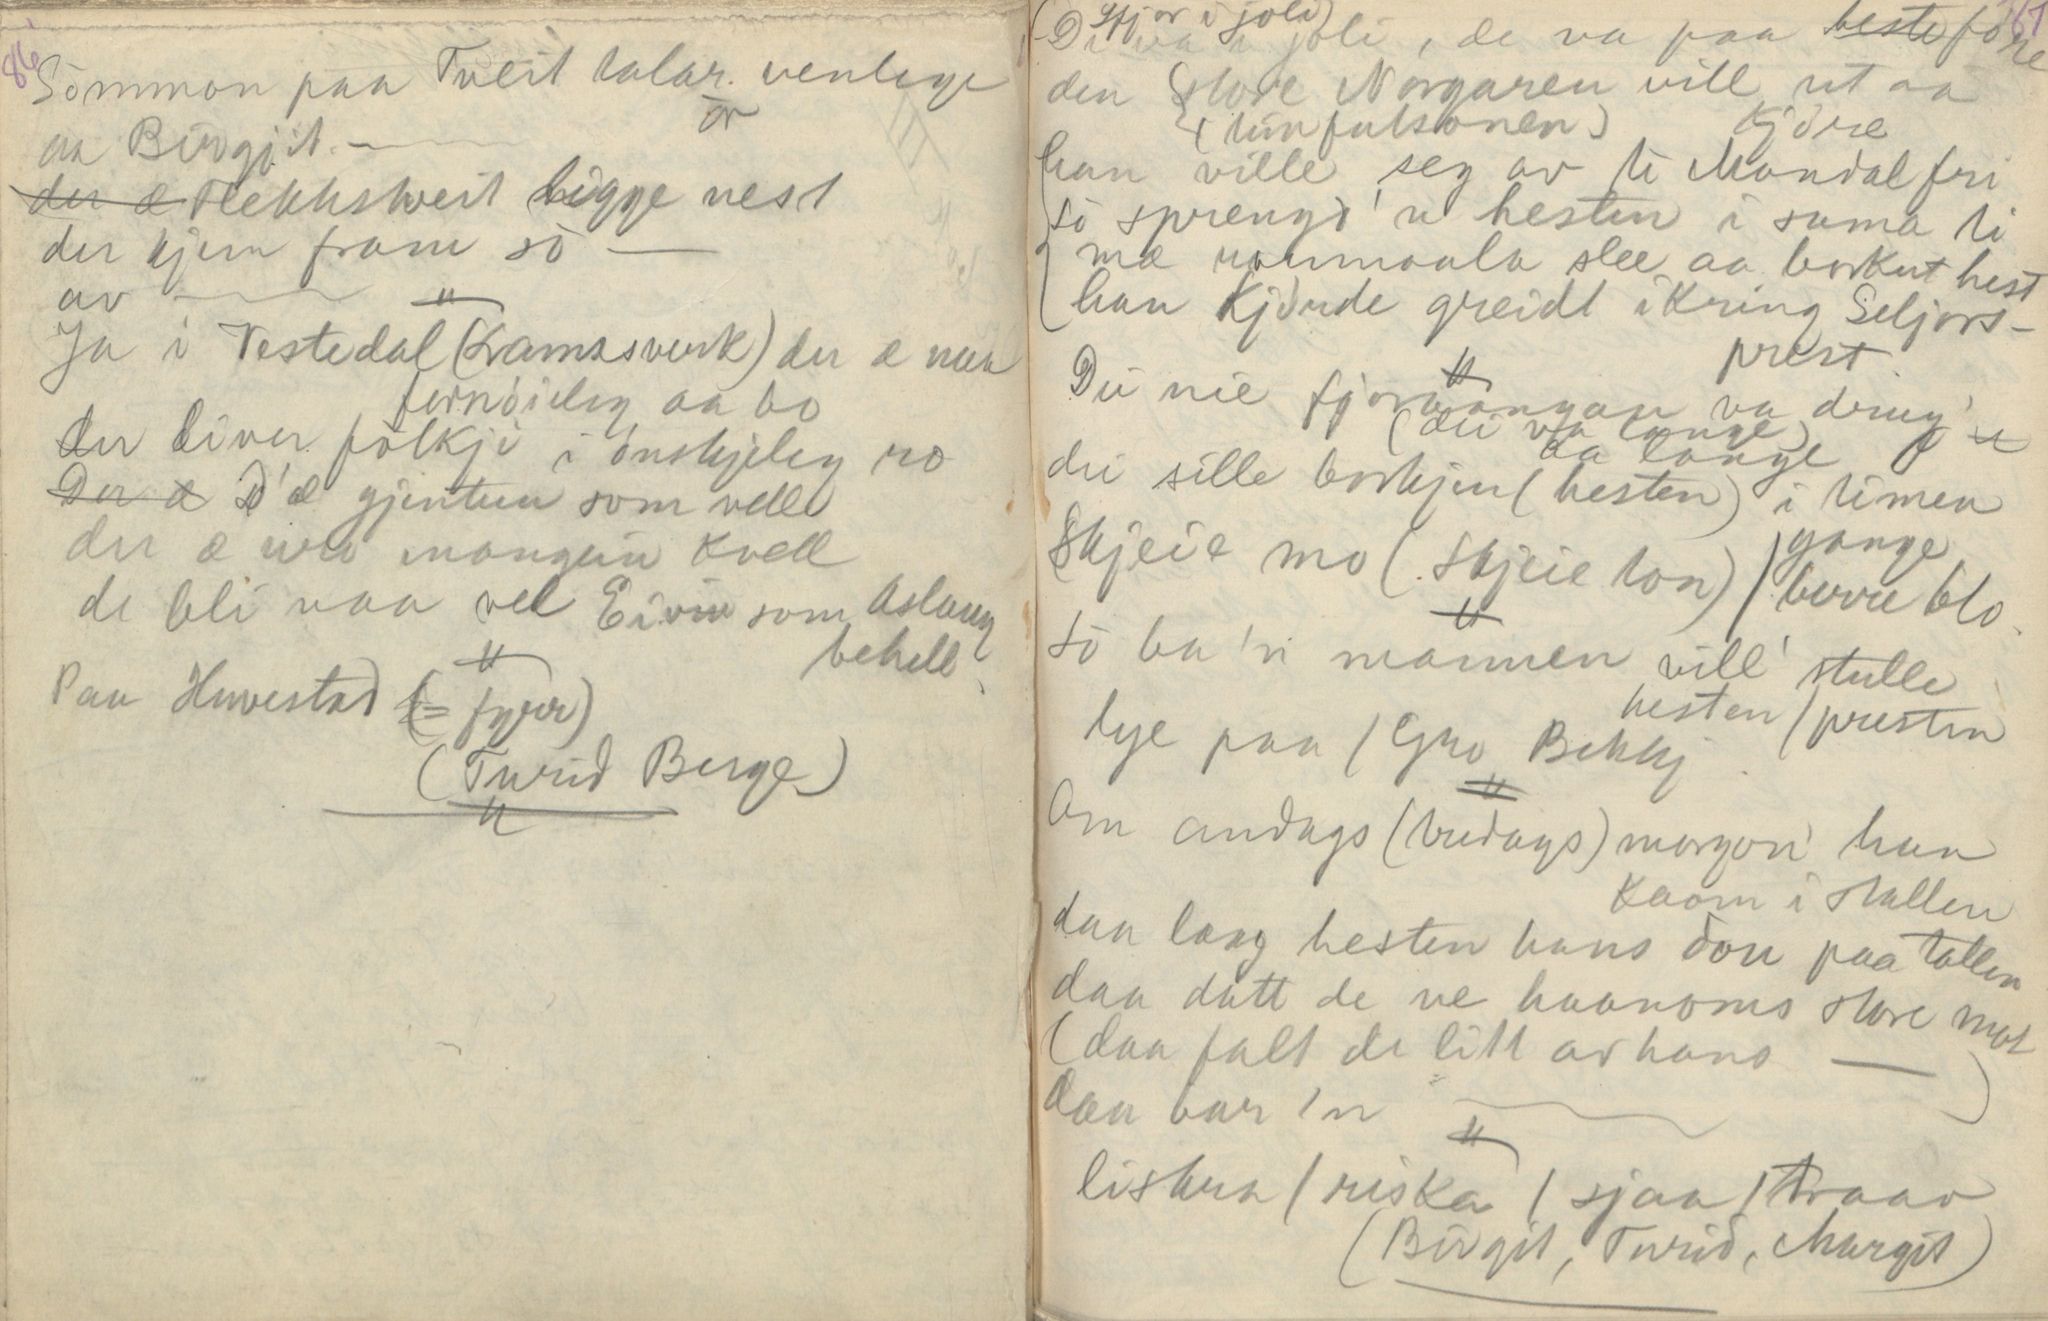 86
Sommon paa Tveit talar venlege
ær
aa Birgjit. —
der æ Flekkstveit ligge nest
der kjem fram so —
av —
"
Ja i Vestedal (Kramsverk) der æ naa
fornöieleg aa bo
der liver folkji i önskjeleg ro
Der æ D'æ gjentun som velle
der æ mangein kvell
de bli naa vel Eivin som Aslaug
behell.
"
Paa Huvestad (= fyrr)
(Turid Berge)
"
67
(Ifjor i joli)
De va i joli, de va paa beste före
den store Norgaren vill ut aa
kjöre
han ville seg av ti Mandal fri
so sprengd' n hesten i sama ti
mæ slee aa borkut hest
han kjörde greidt ikring Seljors-
prest.
"
Dei nie fjoraangan va dryg'
(dei va lange)
aa lange
dei sille borkjen (hesten) i timen
gange
Skjeie mo (Skjeie ton) / berre blo.
"
So ba 'n mannen vill' stelle
hesten / presten
tye paa / Gro Bekkj.
"
Om andags (tredags) morgon' han
kaom i stallen
daa laag hesten hans dou paa tallen
daa datt de ve haanoms store mot
(daa falt de litt av hans — )
daa bar 'n —
"
listra / riska / sjaa / traav
(Birgit, Turid, Margit)